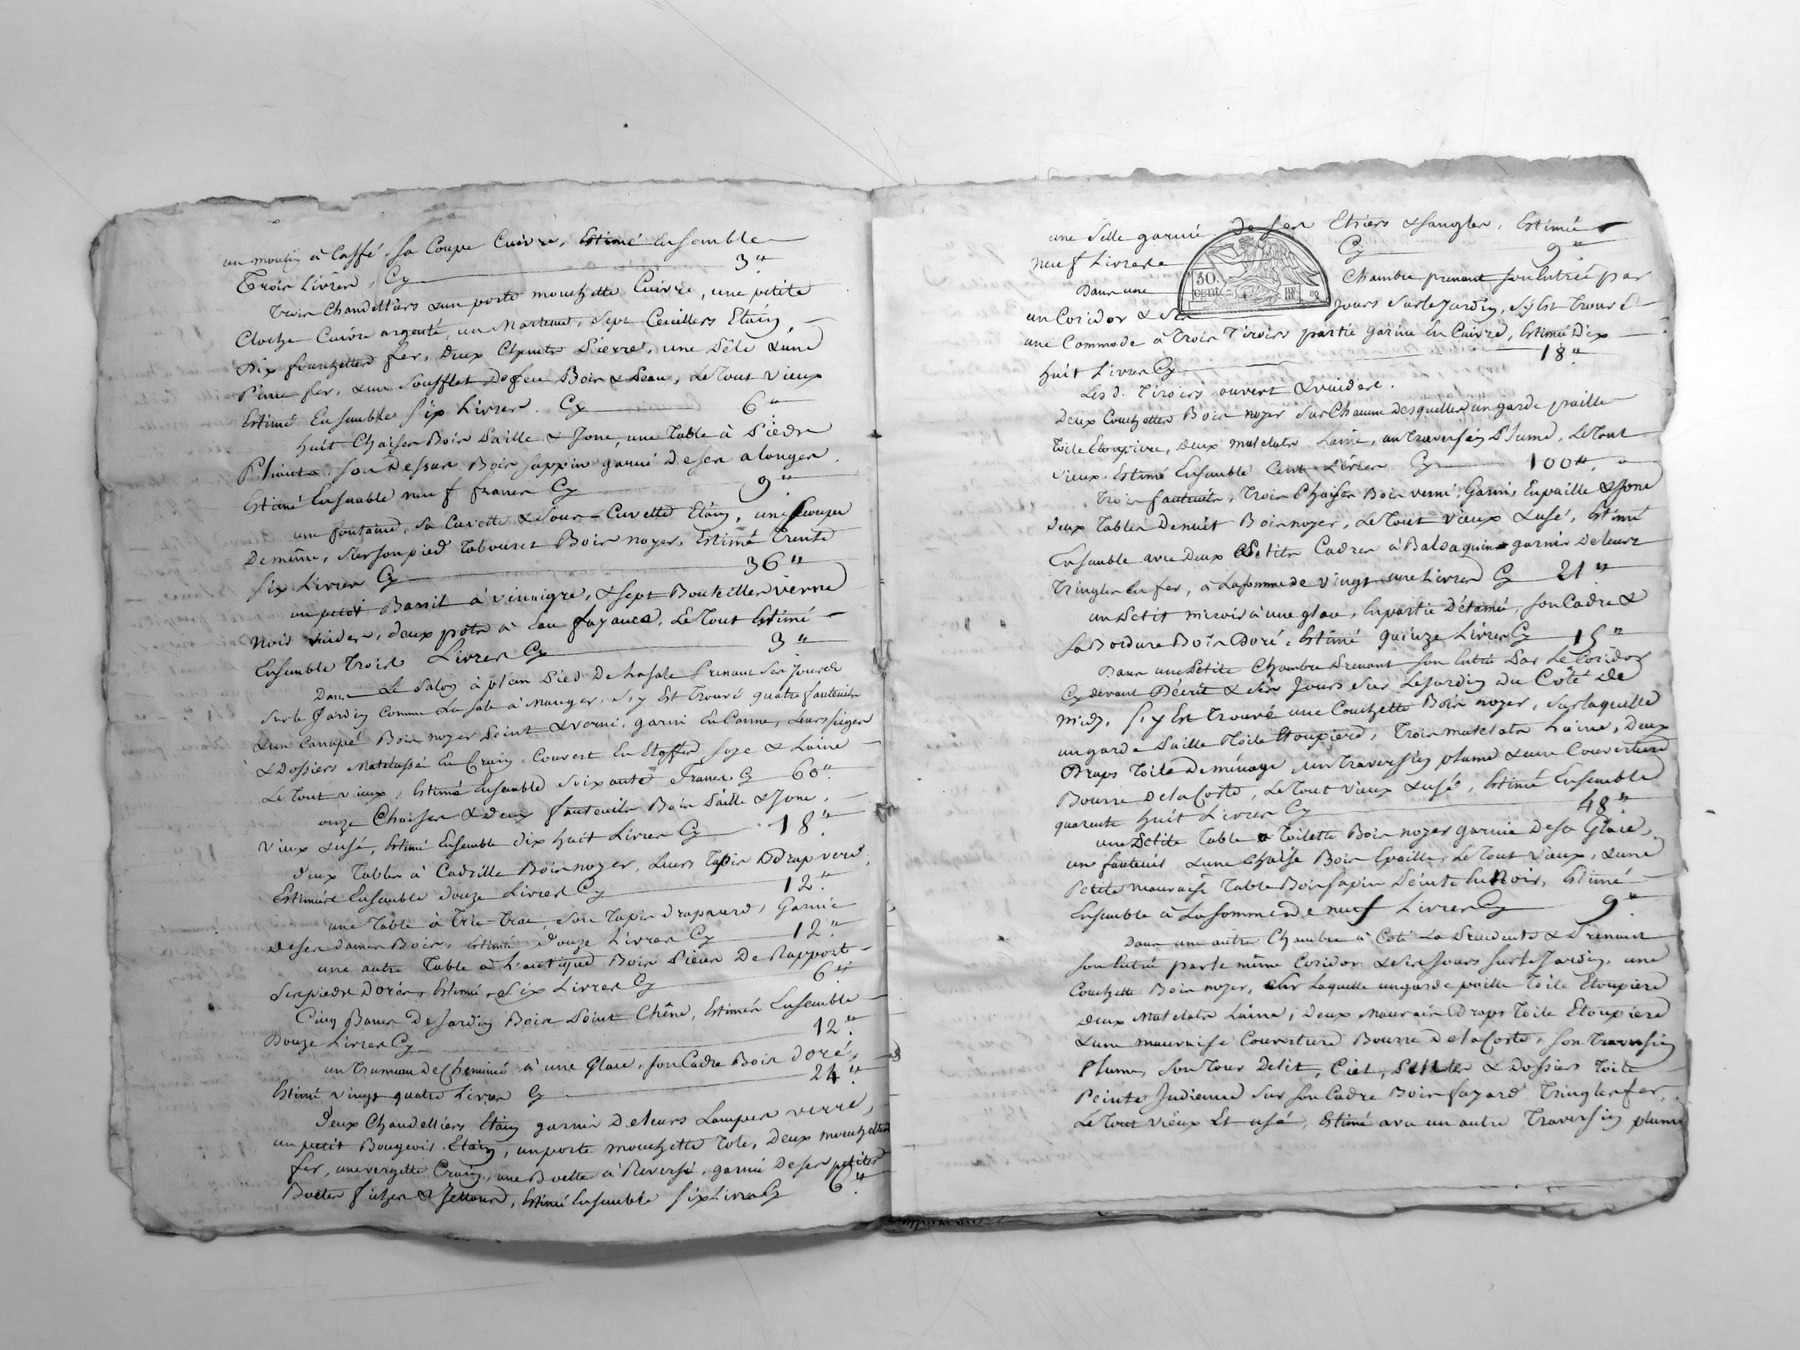 un moulin à Caffé, sa Coupe Cuivre, Estimé Ensemble
Trois Livres, Cy 3 "
Trois Chandelliers & un porte mouchette Cuivre, une petite
Cloche Cuivre argenté, un Marteau, Sept Ceuillers Etain,
Dix fourchettes fer, Deux Chenets Pierre, une Pêle & une
Pince fer, & un Soufflet De feu Bois & Peau, Le Tout vieux
Estimé Ensemble Six Livres. Cy 6 "
huit Chaises Bois Paille & Jonc, une Table à Pieds
Pliants, son Dessus Bois sappin garni de ses alonges
Estimé Ensemble neuf francs Cy 9 "
une fontaine, sa Cuvette & Sous-Cuvette Etain, une
De même, sur son pied Tabouret Bois noyer, Estimé Trente
Six Livres Cy 36 "
un petit Barril à vinaigre, & sept Bouteilles verre
Noir vuides, deux pots à Eau fayance, Le Tout Estimé
Ensemble Trois Livres Cy 3 "
Dans Le Salon à plein Pied De La sale Prenant Ses Jours
Sur le Jardin Comme La sale à Manger, S'y Est Trouvé quatre fauteuils
& un Canapé Bois noyer Peint & verni, garni En Canne, Leurs sieges
& Dossiers Matelassé En Crain, Couvert En Etoffes Soye & Laine
Le Tout vieux, Estimé Ensemble Soixante francs Cy 60 "
onze Chaises & deux fauteuils Bois Paille & Jonc,
Vieux & usé, Estimé Ensemble dix huit Livres Cy 18 "
deux Tables à Cadrille Bois noyer, Leurs Tapis Drap verd,
Estimées Ensemble douze Livres Cy 12 "
une Table à Tric-Trac, son Tapis drap verd, Garnie
de ses dames Bois, Estimé douze Livres Cy 12 "
une autre Table à L'antique Bois Pieces De Rapport
Ses pieds Dorés, Estimé, Six Livres Cy 6 "
Cinq Bancs De Jardin Bois Peint Chêne, Estimés Ensemble
Douze Livres Cy 12 "
un Trumeau de Cheminée à une Glace, son Cadre Bois doré,
Estimé vingt quatre Livres Cy 24 "
Deux Chandelliers Etain garnis de leurs Lampes verre,
un petit Bougeoir Etain, un porte mouchette Tole, deux mouchettes
fer, une vergette Crain, une Boette à Reversi, garnie De ses petites
Boetes fiches & Jettons, Estimé Ensemble Six Livres Cy 6 "
une Selle garnie de ses Etriers & Sangles, Estimée
neuf Livres Cy 9 "
50
cent.
RF
Dans une Chambre prenant son Entrée par
un Coridor & Ses Jours Sur le Jardin, S'y Est Trouvé
une Commode à Trois Tiroirs partie garnie En Cuivre, Estimé Dix
huit Livres Cy 18 "
Les d. Tiroirs ouvert & vuides.
Deux Couchettes Bois noyer Sur Chacune Desquelles un garde paille
Toile Etoupiere, Deux matelats Laine, un Traversin Plume, Le Tout
vieux Estimé Ensemble Cent Livres Cy 100 "
Trois fauteuils, Trois Chaises Bois verni, Garnis En paille & Jonc
deux Tables De nuit Bois noyer, Le Tout vieux & usé, Estimé
Ensemble avec Deux Petits Cadres à Baldaquin garnis De leurs
Tringles En fer, à La somme de vingt une Livres Cy 21 "
un Petit miroir à une glace, En partie Détamé, son Cadre &
Sa Bordure Bois Doré, Estimé quinze Livres Cy 15 "
Dans une Petite Chambre Prenant Son Entrée Par Le Coridor
Cy devant Décrit & Ses Jours Sur Le Jardin Du Coté de
midy, S'y Est Trouvé une Couchette Bois noyer, Sur laquelle
un garde Paille Toile Etoupiere, Trois matelats Laine, Deux
Draps Toile De ménage, un Traversin plume & une Couverture
Bourre De la Coste, Le Tout vieux & usé, Estimé Ensemble
quarente huit Livres Cy 48 "
une Petite Table à Toilette Bois noyer garnie De sa Glace,
un fauteuil & une Chaise Bois & paille, Le Tout vieux, & une
Petite mauvaise Table Bois sapin Peinte En Noir, Estimé
Ensemble à La somme de neuf Livres Cy 9 "
Dans une autre Chambre à Coté La Precedente & Prenant
son Entré par le même Coridor & Ses Jours Sur le Jardin, une
Couchette Bois noyer, Sur Laquelle un garde paille Toile Etoupiere
deux Matelats Laine, Deux mauvais Draps Toile Etoupiere
& une mauvaise Couverture Bourre De la Coste, Son Traversin
Plume, son Tour De lit, Ciel, & Dossier Toile
Peinte Indienne Sur son Cadre Bois fayard Tringles fer,
Le Tout vieux Et usé, Estimé avec un autre Traversin plume